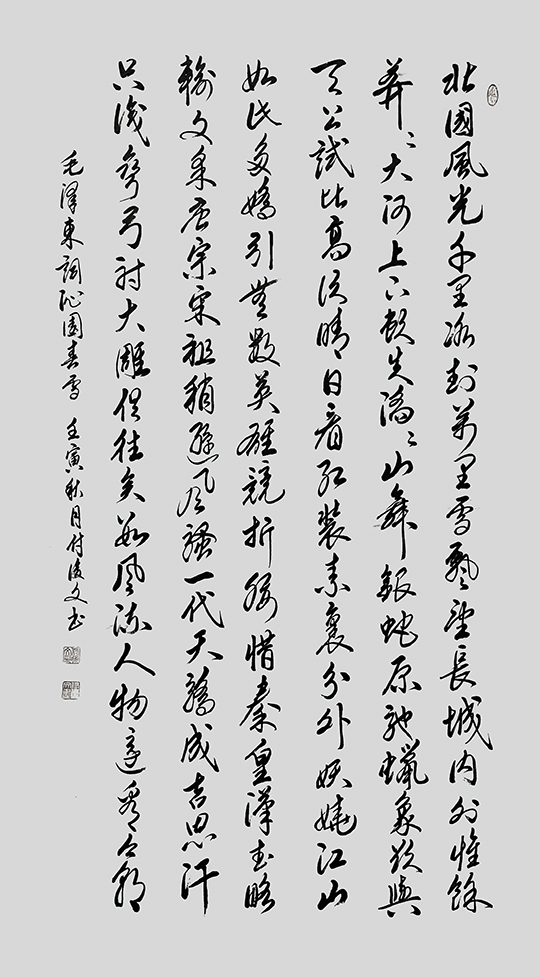 北國風光千里冰封萬里雪飄望長城內外惟餘
莽〻大河上下頓失滔〻山舞銀蛇原馳蠟象欲與
天公試比高須晴日看紅裝素裹分外妖嬈江山
如此多嬌引無數英雄競折腰惜秦皇漢武略
輸文采唐宗宋祖稍遜風騷一代天驕成吉思汗
只識彎弓射大雕俱往矣數風流人物還看今朝
毛澤東詞沁園春雪 壬寅秋月付俊文書